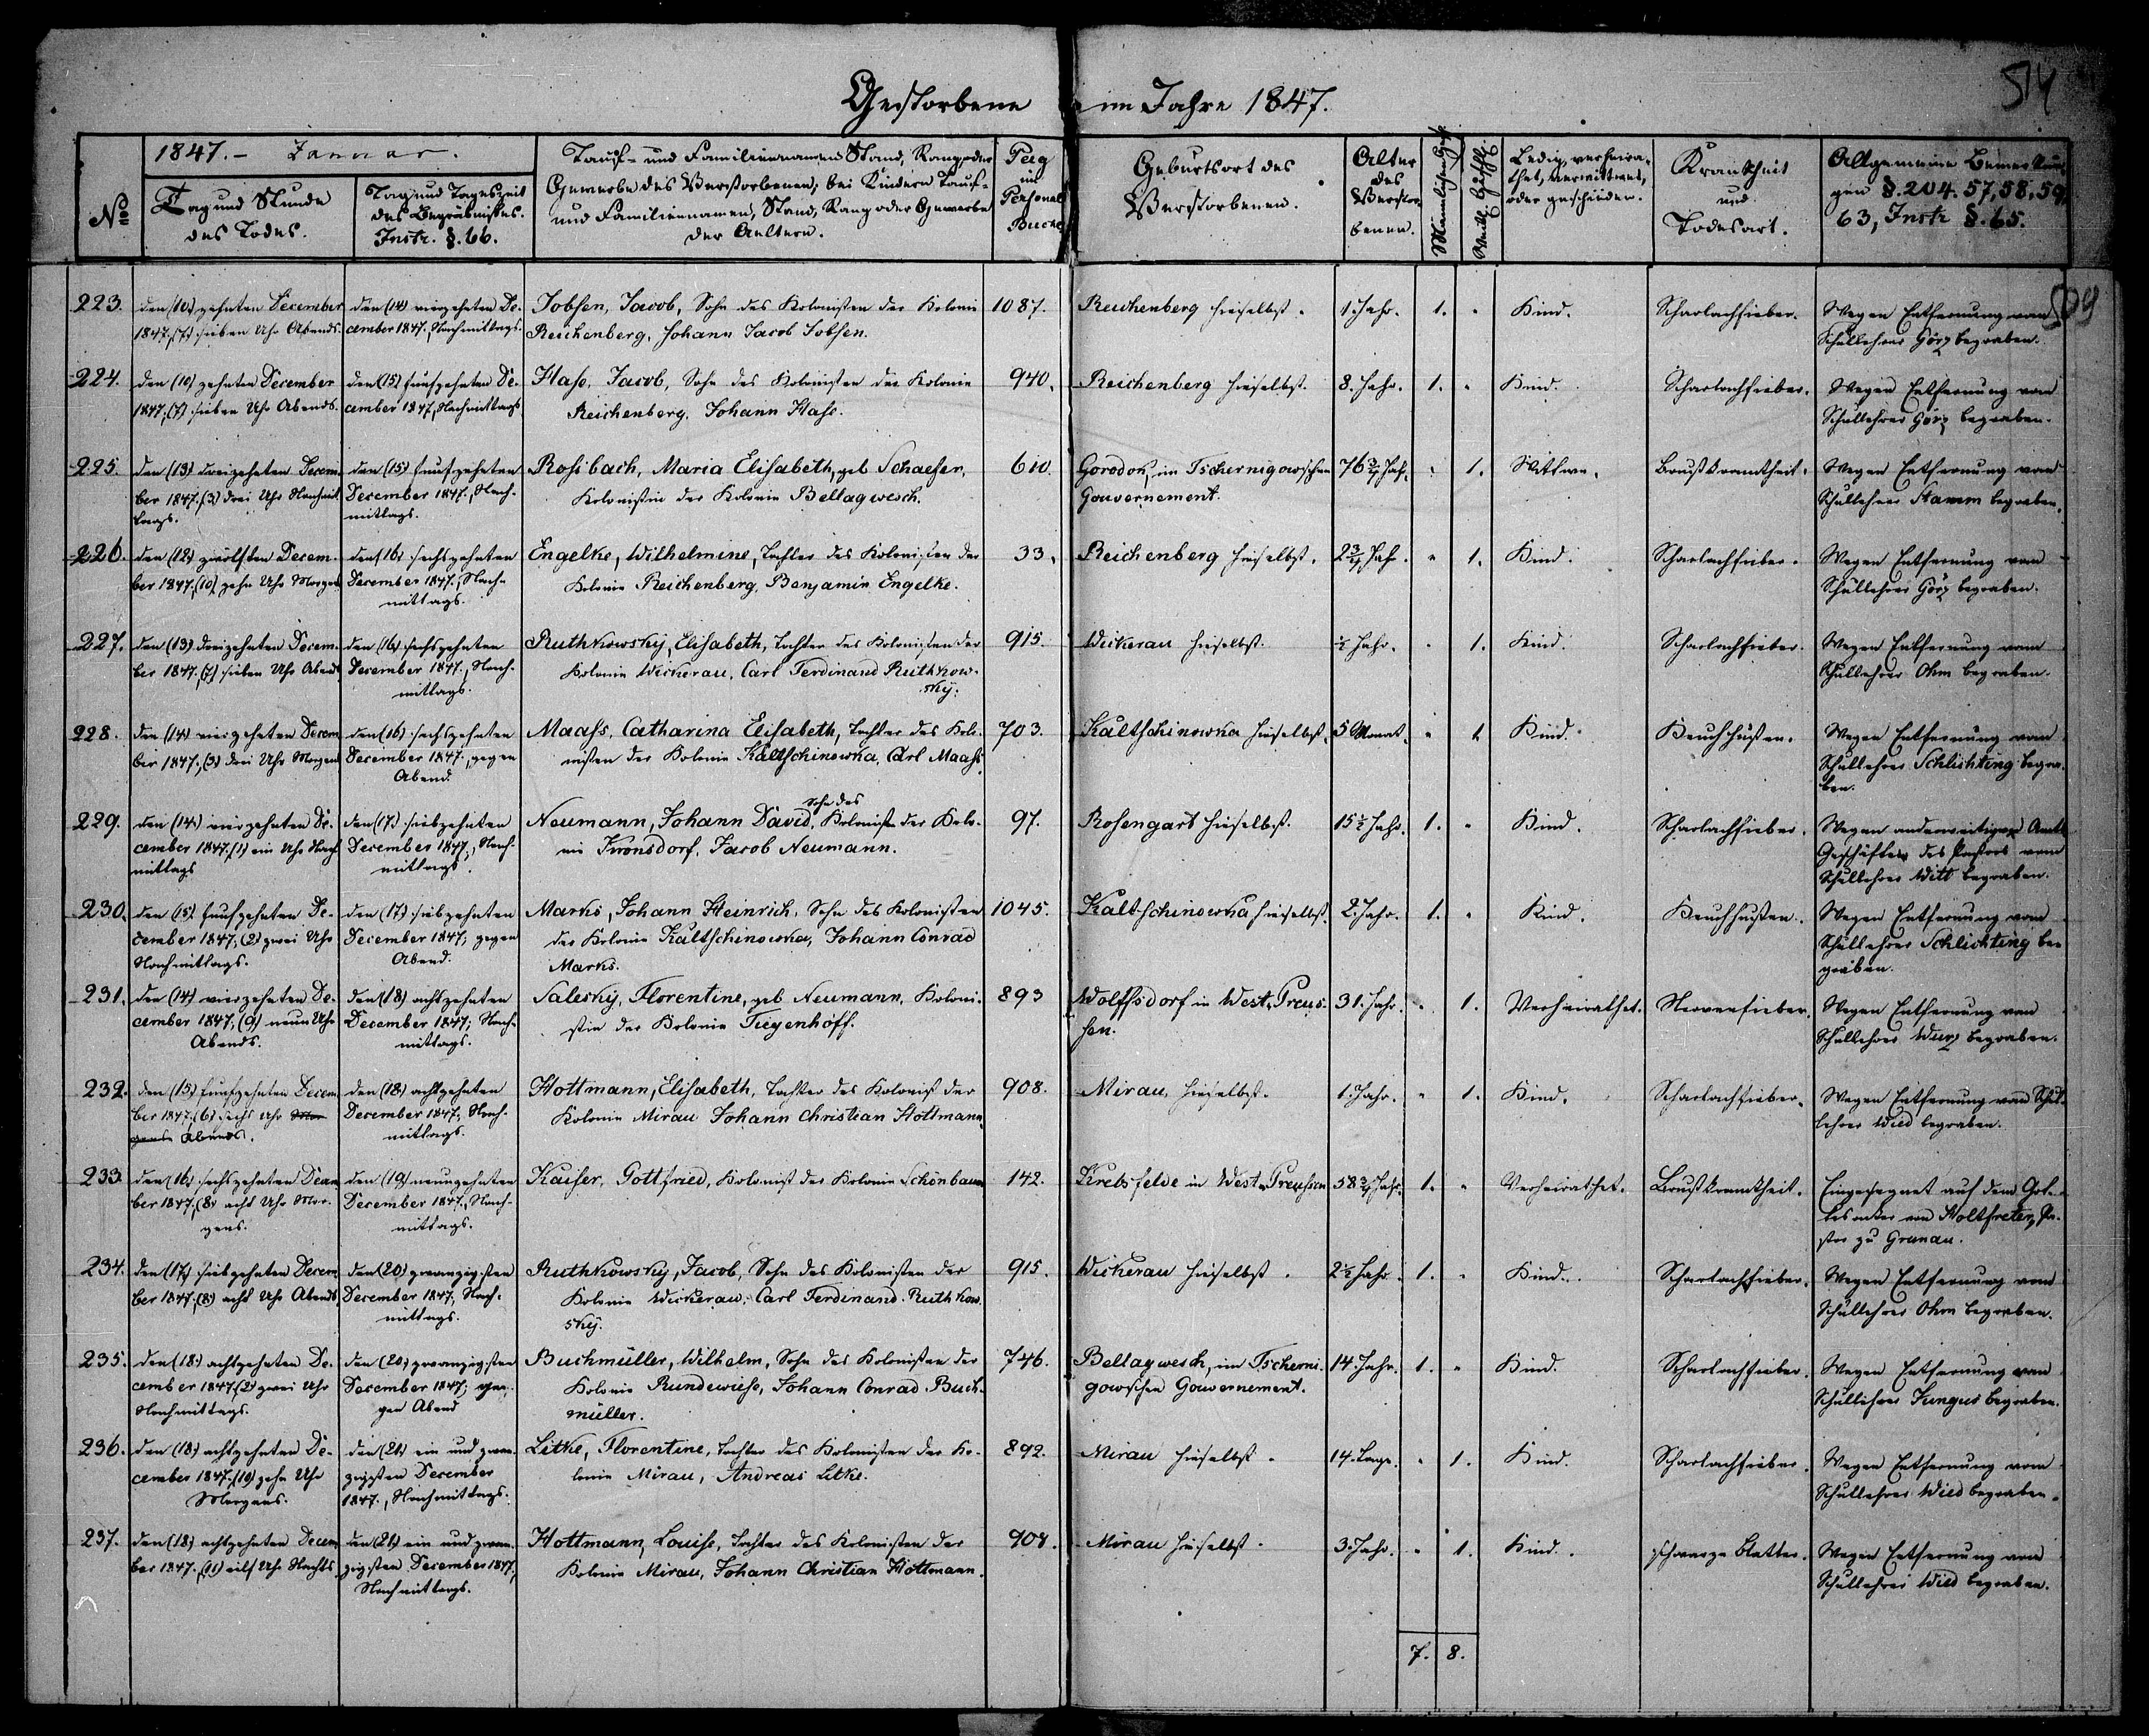 514
Gestorbene im Jahre 1847.
1847. – Januar.
No
Tag und Stunde
des Todes.
Tag und Tageszeit
des Begräbnisses.
Instr. §. 66.
Tauf- und Familiennamen Stand, Rang oder
Gewerbe des Verstorbenen; bei Kindern Tauf-
und Familiennamen, Stand, Rang oder Gewerbe
der Aeltern.
Pag
im
Personal
Buche
Geburtsort des
Verstorbenen.
Alter
des
Verstor-
benen.
Männlichen Geschl.
Weibl. Geschl.
Ledig, verheira-
thet, verwittwet,
oder geschieden.
Krankheit
und
Todesart.
Allgemeine Bemerkun-
gen §. 204. 57, 58, 59,
63, Instr §. 65.
509
223. den (10) zehnten December den (14) vierzehnten De- Jobsen, Jacob, Sohn des Kolonisten der Kolonie 1087. Reichenberg hieselbst. 1. Jahr. 1. " Kind. Scharlachfieber. Wegen Entfernung vom
1847, (7) sieben Uhr Abends. cember 1847, Nachmittags. Reichenberg, Johann Jacob Jobsen. Schullehrer Görz begraben.
224. den (10) zehnten December den (15) fünfzehnten De- Hase, Jacob, Sohn des Kolonisten der Kolonie 940. Reichenberg hieselbst. 8. Jahr. 1. " Kind. Scharlachfieber. Wegen Entfernung vom
1847, (7) sieben Uhr Abends. cember 1847, Nachmittags Reichenberg, Johann Hase. Schullehrer Görz begraben.
225. den (13) dreizehnten Decem- den (15) fünfzehnten Rosibach, Maria Elisabeth, geb Schaefer, 610. Gorodok, im Tschernigowschen 76 3/4 Jahr. " 1. Wittwe. Brustkrankheit. Wegen Entfernung vom
ber 1847, (3) drei Uhr Nachmit- December 1847, Nach- Kolonistin der Kolonie Beltagwesch. Gouvernement. Schullehrer Stamm begraben.
tags. mittags.
226. den (12) zwölften Decem- den (16) sechszehnten Engelke, Wilhelmine, Tochter des Kolonisten der 33. Reichenberg hieselbst. 2 3/4 Jahr. " 1. Kind. Scharlachfieber. Wegen Entfernung vom
ber 1847, (10) zehn Uhr Morgens December 1847, Nach- Kolonie Reichenberg, Benjamin Engelke. Schullehrer Görz begraben.
mittags.
227. den (13) dreizehnten Decem- den (16) sechszehnten Ruthkowsky, Elisabeth, Tochter des Kolonisten der 915. Wickerau hieselbst. 1/2 Jahr. " 1. Kind. Scharlachfieber. Wegen Entfernung vom
ber 1847, (7) sieben Uhr Abends December 1847, Nach- Kolonie Wickerau, Carl Ferdinand Ruthkow- Schullehrer Ohm begraben.
mittags. sky.
228. den (14) vierzehnten Decem- den (16) sechszehnten Maass, Catharina Elisabeth, Tochter des Kolo- 703. Kaltschinowka hieselbst. 5 Monat. " 1. Kind. Keuchhusten. Wegen Entfernung vom
ber 1847, (3) drei Uhr Morgens December 1847, gegen nisten der Kolonie Kaltschinowka, Carl Maass. Schullehrer Schlichting begra-
Abend ben.
229. den (14) vierzehnten De- den (17) siebzehnten Neumann, Johann David, Sohn des Kolonist der Kolo- 97. Rosengart hieselbst. 15 1/2 Jahr. 1. " Kind. Scharlachfieber. Wegen anderweitiger Amts
cember 1847, (1) ein Uhr Nach- December 1847, Nach- nie Kronsdorf, Jacob Neumann. Geschäfte des Pastors vom
mittags mittags. Schullehrer Witt begraben.
230. den (15) fünfzehnten De- den (17) siebzehnten Marks, Johann Heinrich, Sohn des Kolonisten 1045. Kaltschinowka hieselbst. 2. Jahr. 1. " Kind. Keuchhusten. Wegen Entfernung vom
cember 1847, (2) zwei Uhr December 1847, gegen der Kolonie Kaltschinowka, Johann Conrad Schullehrer Schlichting be-
Nachmittags. Abend. Marks. graben.
231. den (14) vierzehnten De- den (18) achtzehnten Salesky, Florentine, geb Neumann, Koloni- 893 Wolffsdorf in West-Preus- 31. Jahr. " 1. Verheirathet. Nervenfieber. Wegen Entfernung vom
cember 1847, (9) neun Uhr December 1847, Nach- stin der Kolonie Tiegenhoff. sen. Schullehrer Wurz begraben.
Abends. mittags.
232. den (15) fünfzehnten Decem- den (18) achtzehnten Hottmann, Elisabeth, Tochter des Kolonist der 908. Mirau, hieselbst. 1. Jahr. " 1. Kind. Scharlachfieber. Wegen Entfernung vom Schul-
ber 1847, (6) sechs Uhr Mor- December 1847, Nach- Kolonie Mirau Johann Christian Hottmann. lehrer Wied begraben.
gens Abends. mittags.
233. den (16) sechszehnten Decem- den (19) neunzehnten Kaiser, Gottfried, Kolonist der Kolonie Schönbaum 142. Krebsfelde in West-Preussen 58 3/4 Jahr. 1. " Verheirathet. Brustkrankheit. Eingesegnet auf dem Got-
ber 1847, (8) acht Uhr Mor- December 1847, Nach- tesacker von Holtfreter, Pa-
gens. mittags. stor zu Grunau.
234. den (17) siebzehnten Decem- den (20) zwanzigsten Ruthkowsky, Jacob, Sohn des Kolonisten der 915. Wickerau hieselbst. 2 1/2 Jahr. 1. " Kind. Scharlachfieber. Wegen Entfernung vom
ber 1847, (8) acht Uhr Abends December 1847, Nach- Kolonie Wickerau, Carl Ferdinand Ruthkow- Schullehrer Ohm begraben.
mittags. sky.
235. den (18) achtzehnten De- den (20) zwanzigsten Buchmüller, Wilhelm, Sohn des Kolonisten der 746. Beltagwesch, im Tscherni- 14. Jahr. 1. " Kind. Scharlachfieber. Wegen Entfernung vom
cember 1847, (2) zwei Uhr December 1847, ge- Kolonie Rundewiese, Johann Conrad Buch- gowschen Gouvernement. Schullehrer Jungus begraben.
Nachmittags. gen Abend müller.
236. den (18) achtzehnten De- den (21) ein und zwan- Litke, Florentine, Tochter des Kolonisten der Ko- 892. Mirau hieselbst. 14. Tage. " 1. Kind. Scharlachfieber. Wegen Entfernung vom
cember 1847, (10) zehn Uhr zigsten December lonie Mirau, Andreas Litke. Schullehrer Wied begraben.
Morgens. 1847, Nachmittags.
237. den (18) achtzehnten Decem- den (21) ein und zwan- Hottmann, Louise, Tochter des Kolonisten der 908. Mirau hieselbst. 3. Jahr. " 1. Kind. schwarze Blattern. Wegen Entfernung vom
ber 1847, (11) eilf Uhr Nachts. zigsten December 1847, Kolonie Mirau, Johann Christian Hottmann. Schullehrer Wied begraben.
Nachmittags.
7. 8.